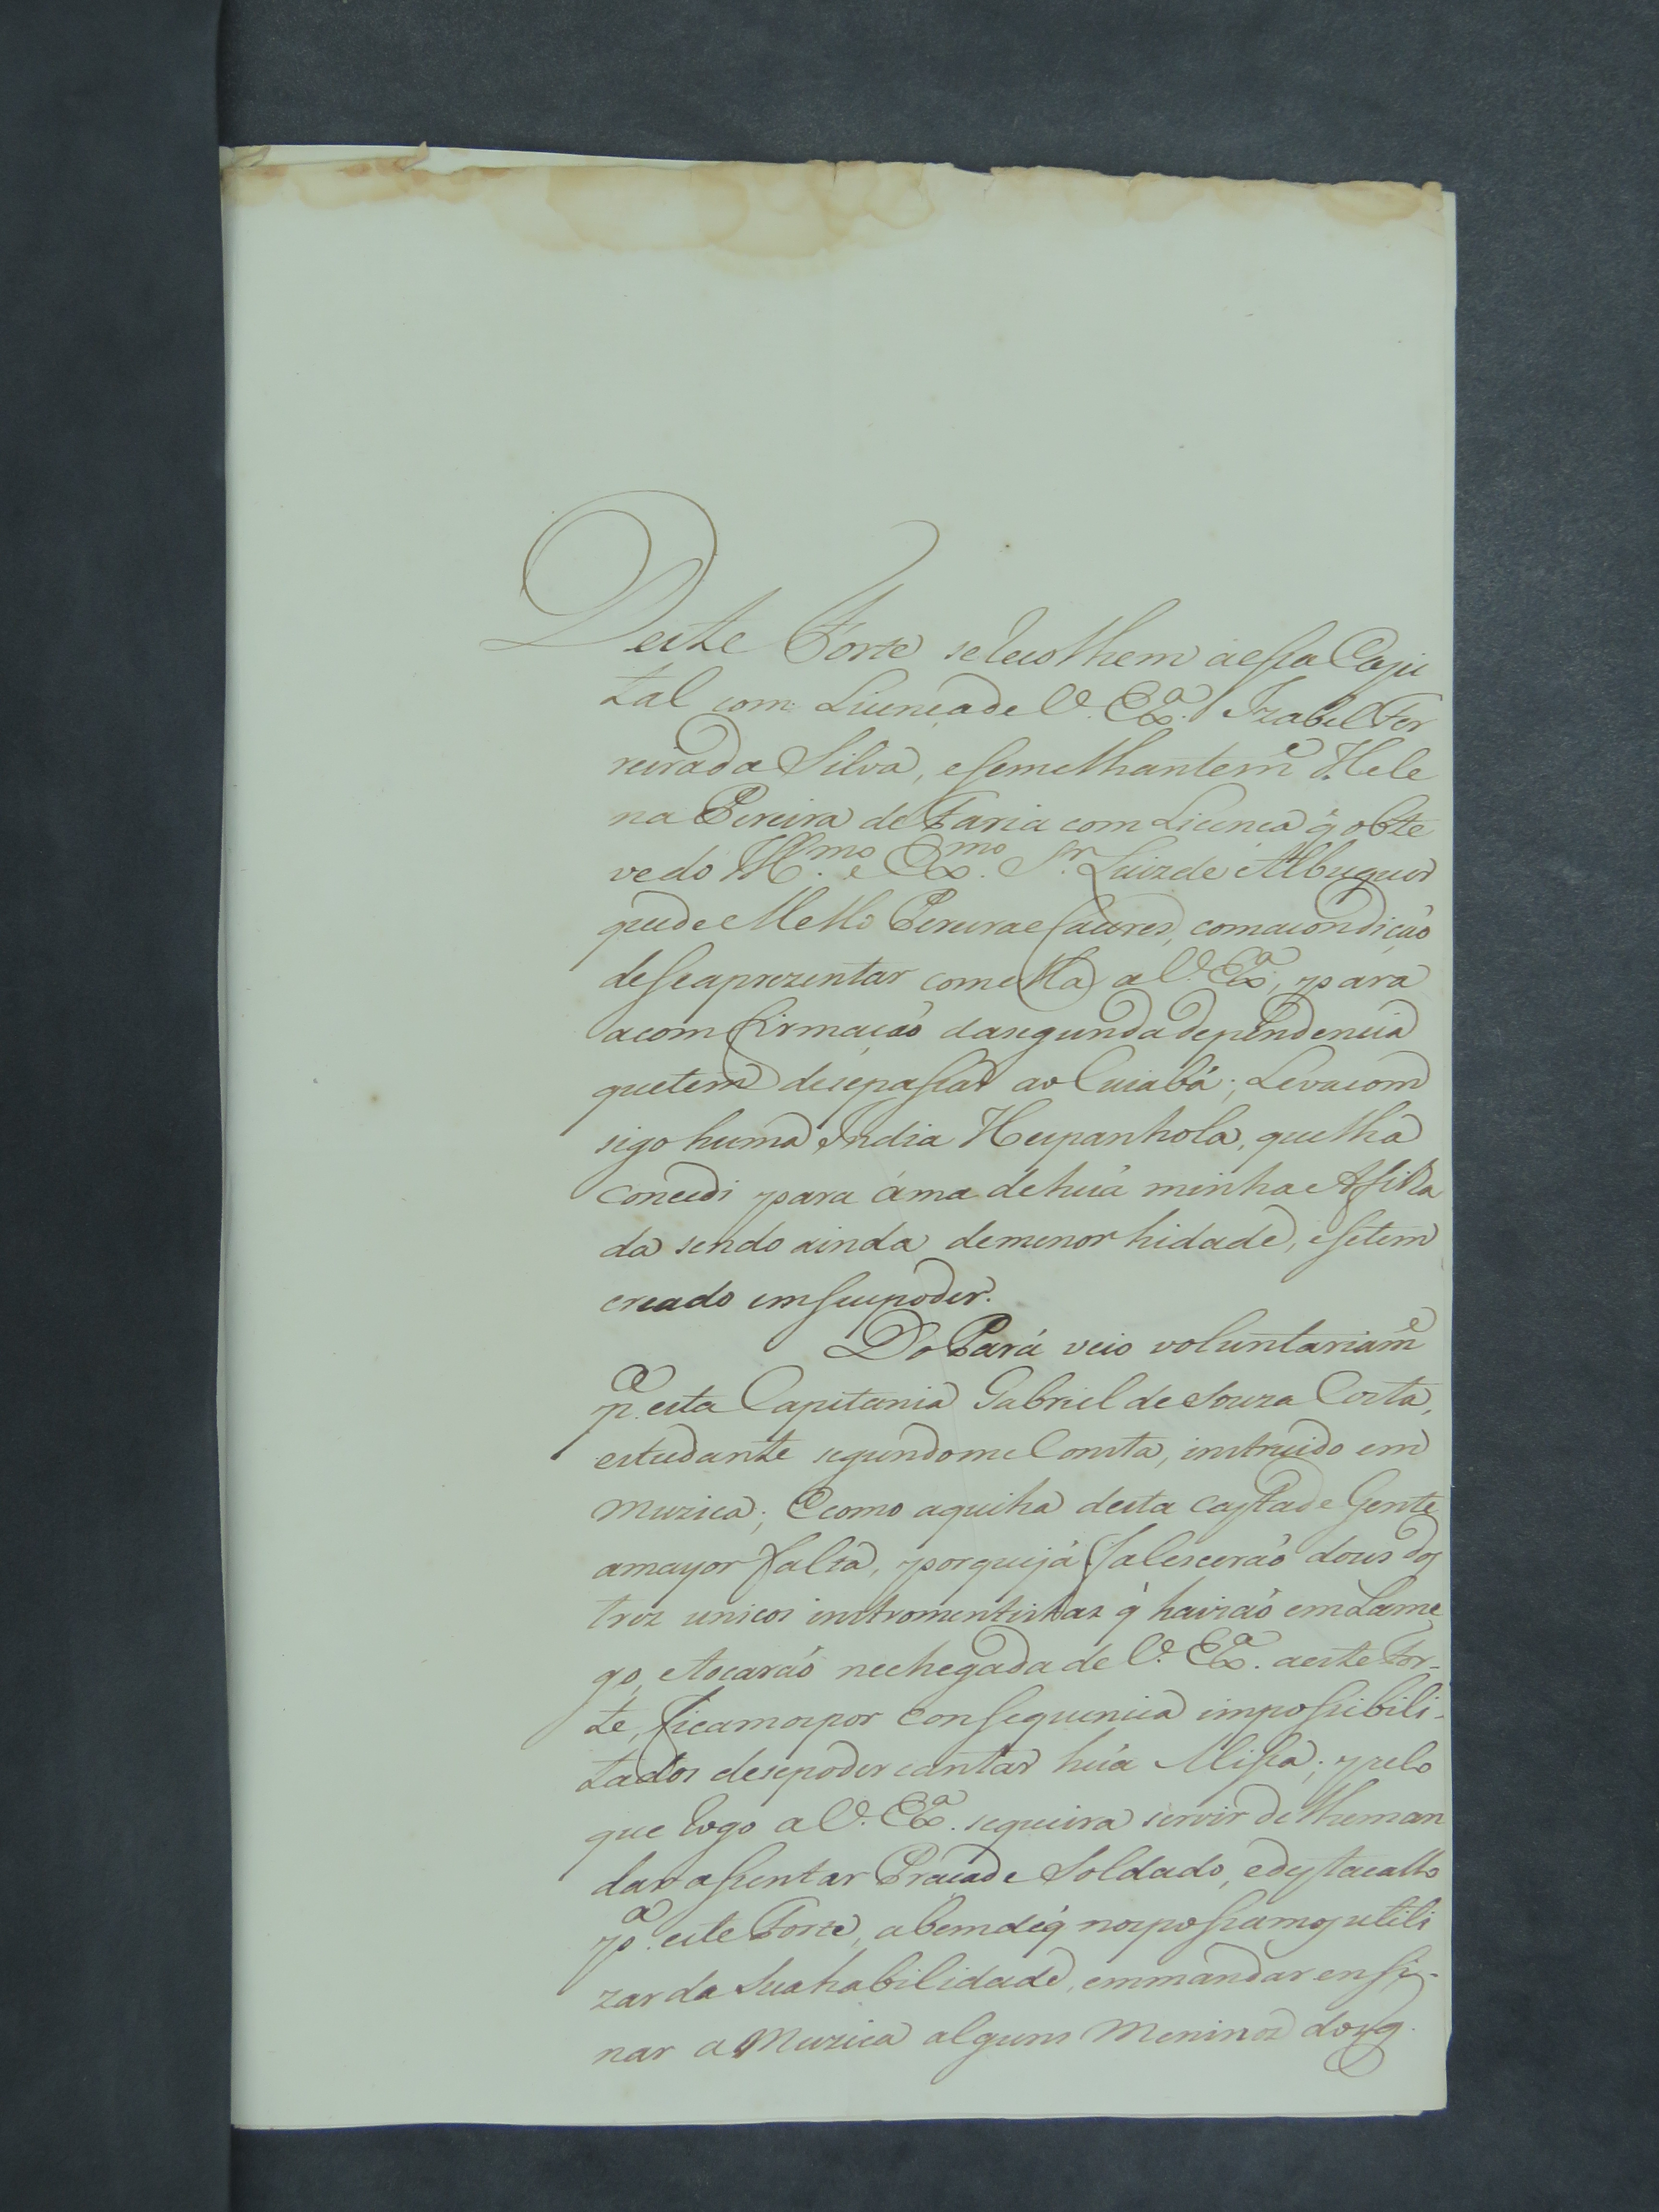 Deste Forte serecolhem áessa Capi
tal com Licençade V. Exª. Izabel Fer
reirada Silva, esemelhantemᵉ Hele
na Pereira de Faria com Licença q̃ obte
vedo Illᵐᵒ. e Exᵐᵒ. Sʳ. Luizde Albuquer
quede Mello Pereirae Caceres, comacondição
deseaprezentar comella a V. Exª., para
acomfirmação dasegunda dependencia
quetem desepassar ao Cuiabá; Levacom
sigo huma India Hespanhola, quelha
concedi para áma dehuã minha Afilha
da sendo ainda demenor hidade, esetem
creado emseupoder.
Do Pará veio voluntariamᵉ
pª. esta Capitania Gabriel de Souza Costa,
estudante segundome Consta, instruido em
Muzica; Ecomo aquiha desta castade Gente
amayor falta, porquejá falescerão dous dos
trez unicos instromentistas q̃ havião em Lame
go, etocarão nechegadade V. Exª. aeste For-
te, ficamospor consequencia impossibili-
tados desepoder cantar huã Missa; pelo
que rogo a V. Exª. sequeira servir delheman
dar assentar Praçade Soldado, edestacallo
pª. este Forte, abemdeq̃ nospossamos utili
zarda Suahabilidade, emmandar ensi-
nar a Muzica alguns Meninos dosq̃